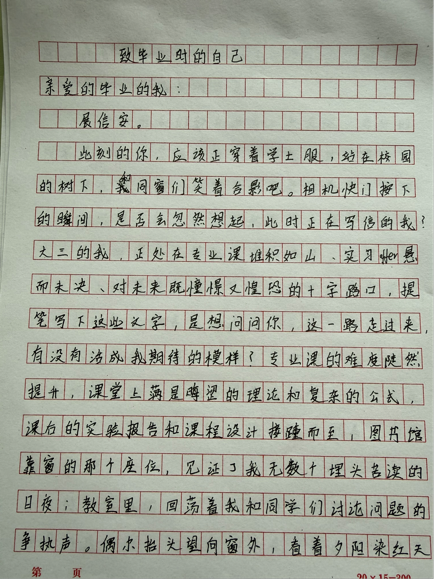 致毕业时的自己
亲爱的毕业的我：
展信安。
此刻的你，应该正穿着学士服，站在校园
的树下，和同窗们笑着合影吧。相机快门按下
的瞬间，是否会忽然想起，此时正在写信的我？
大三的我，正处在专业课堆积如山、实习悬
而未决、对未来既憧憬又惶恐的十字路口，提
笔写下这些文字，是想问问你，这一路走过来，
有没有活成我期待的模样？专业课的难度陡然
提升，课堂上满是晦涩的理论和复杂的公式，
课后的实验报告和课程设计接踵而至，图书馆
靠窗的那个座位，见证了我无数个埋头苦读的
日夜；教室里，回荡着我和同学们讨论问题的
争执声。偶尔抬头望向窗外，看着夕阳染红天
第 页
20×15=300